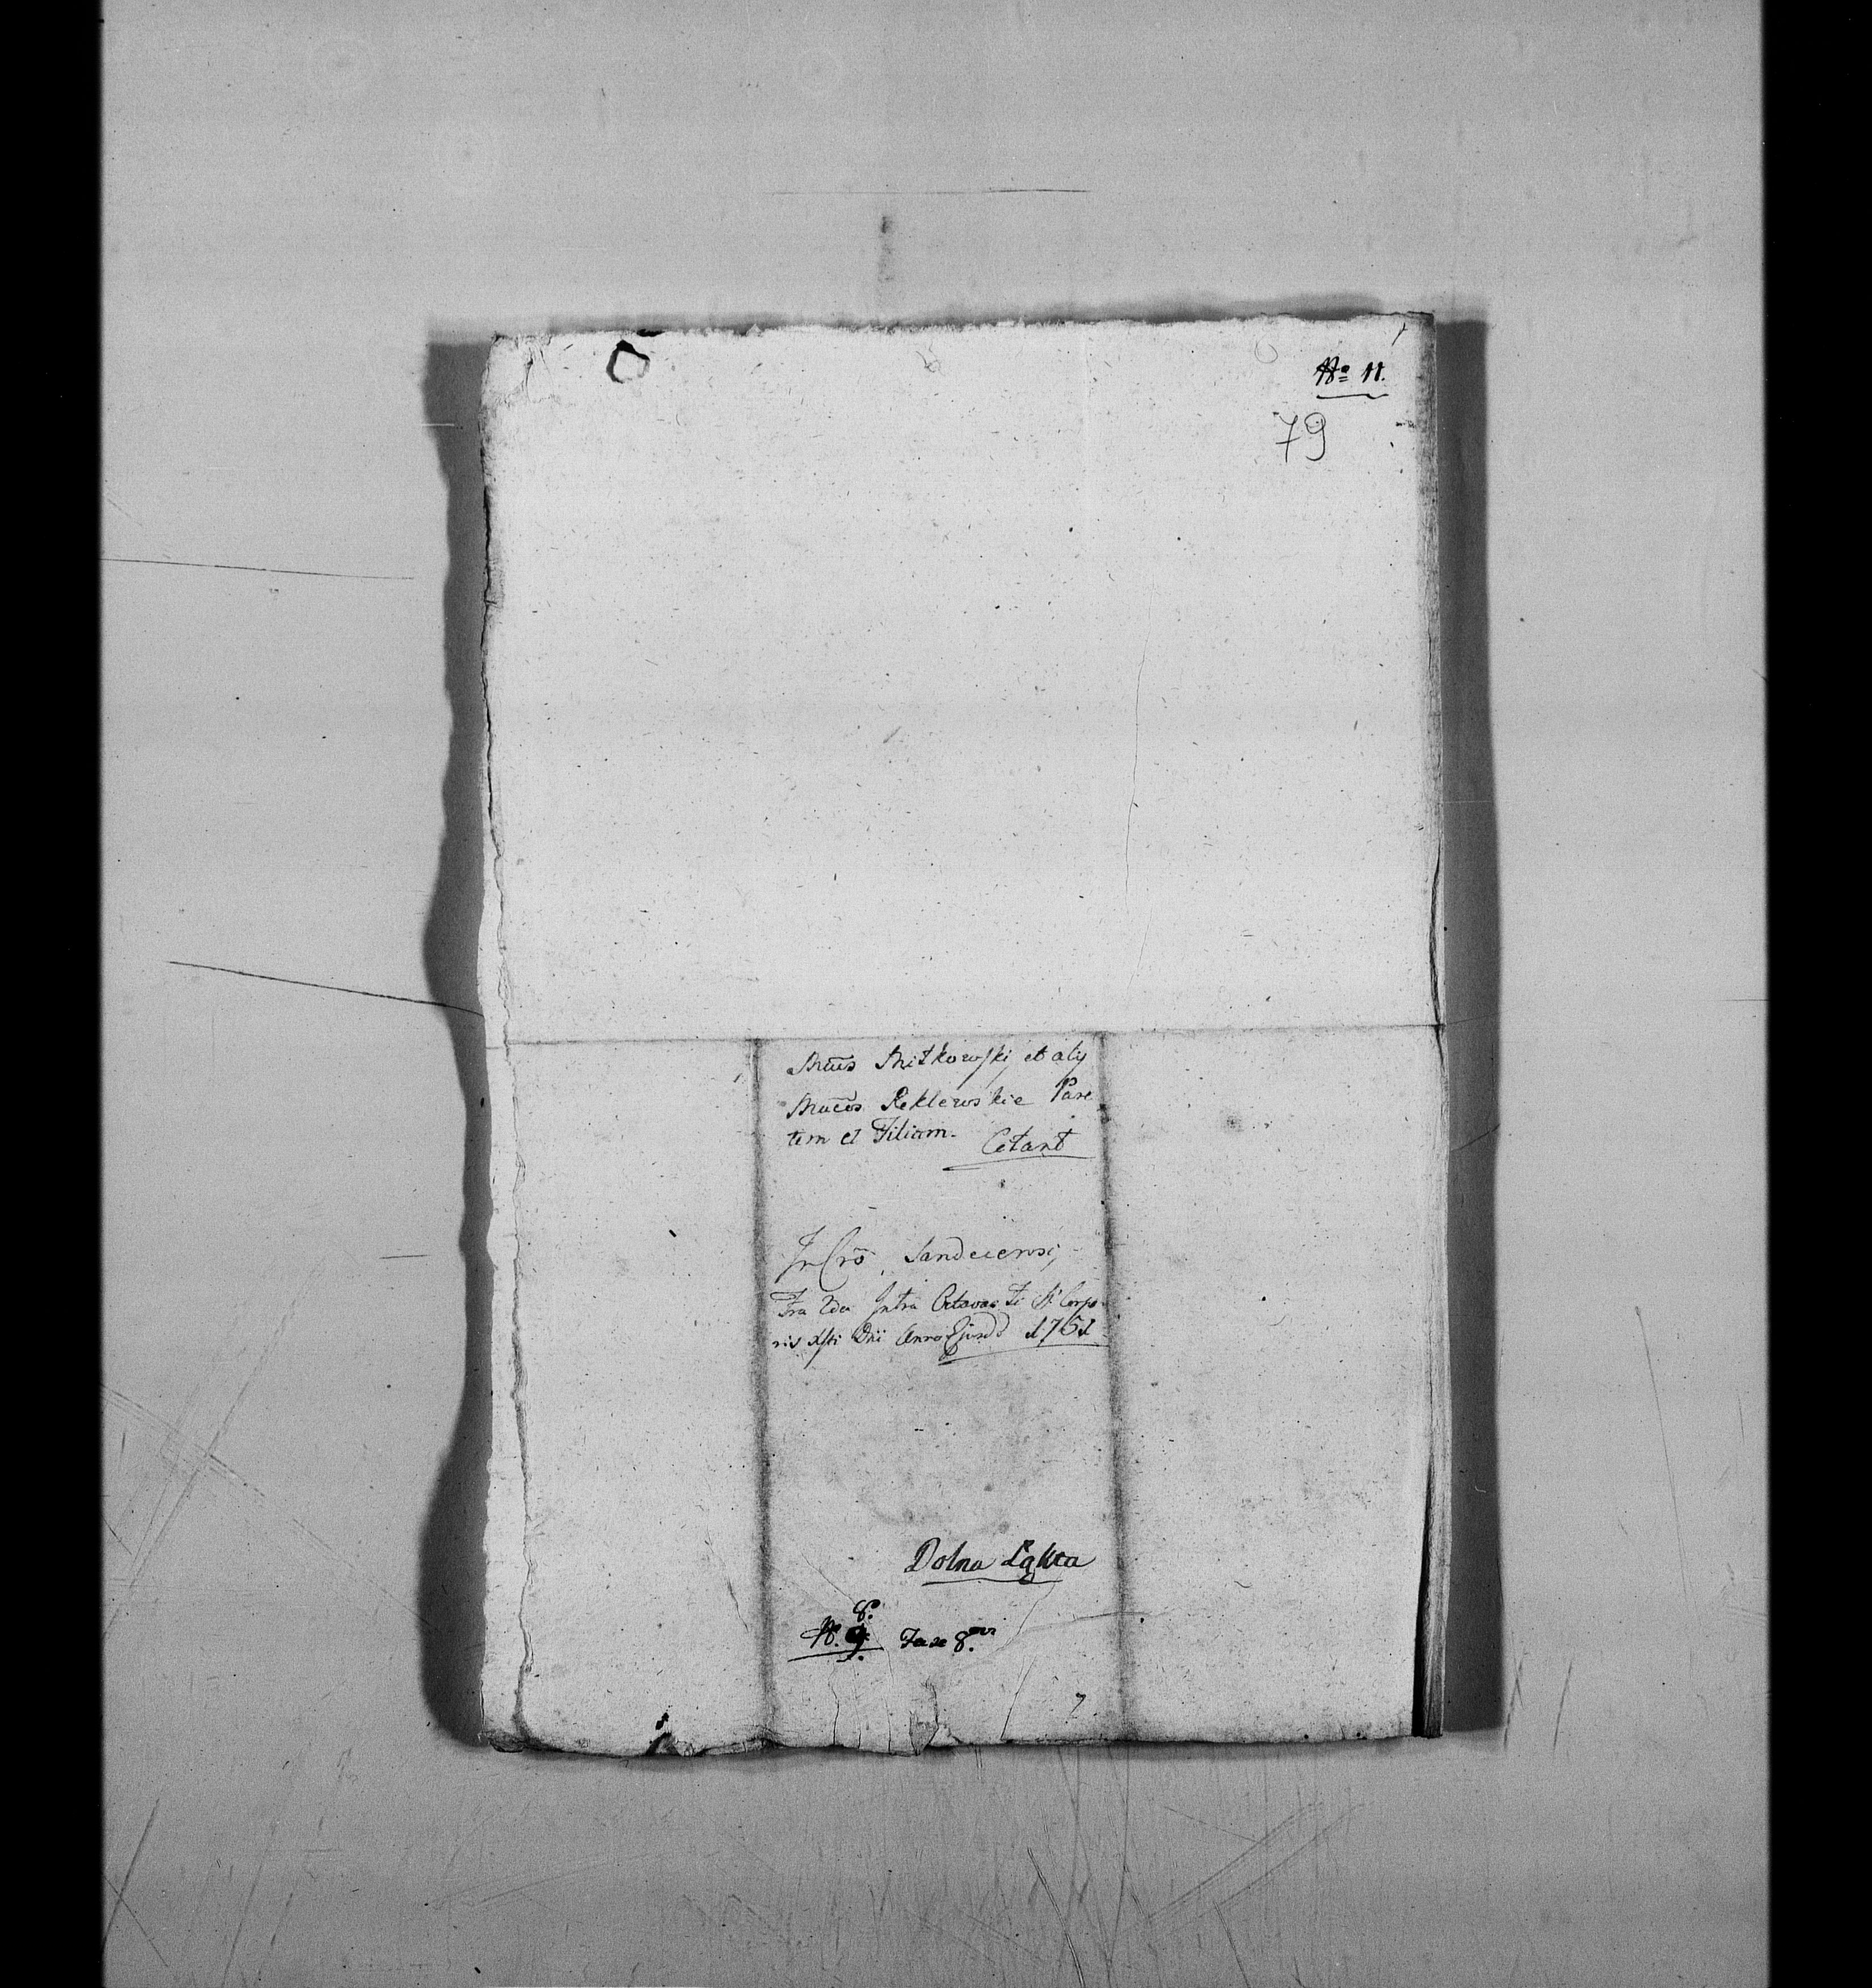 No 11.
79
Mcūs Mitkowski, et alij
Mācōs Reklewskie Pare
tem et Filiam.
Citant
In Crō. Sandecensi,
Fra 2da Intra Octavas Fi S. Corpo
ris Xsti Dni Anno Ejusdd 1761
Dolna Łąkta
8.
N. 9. Fasc 8.vi
7